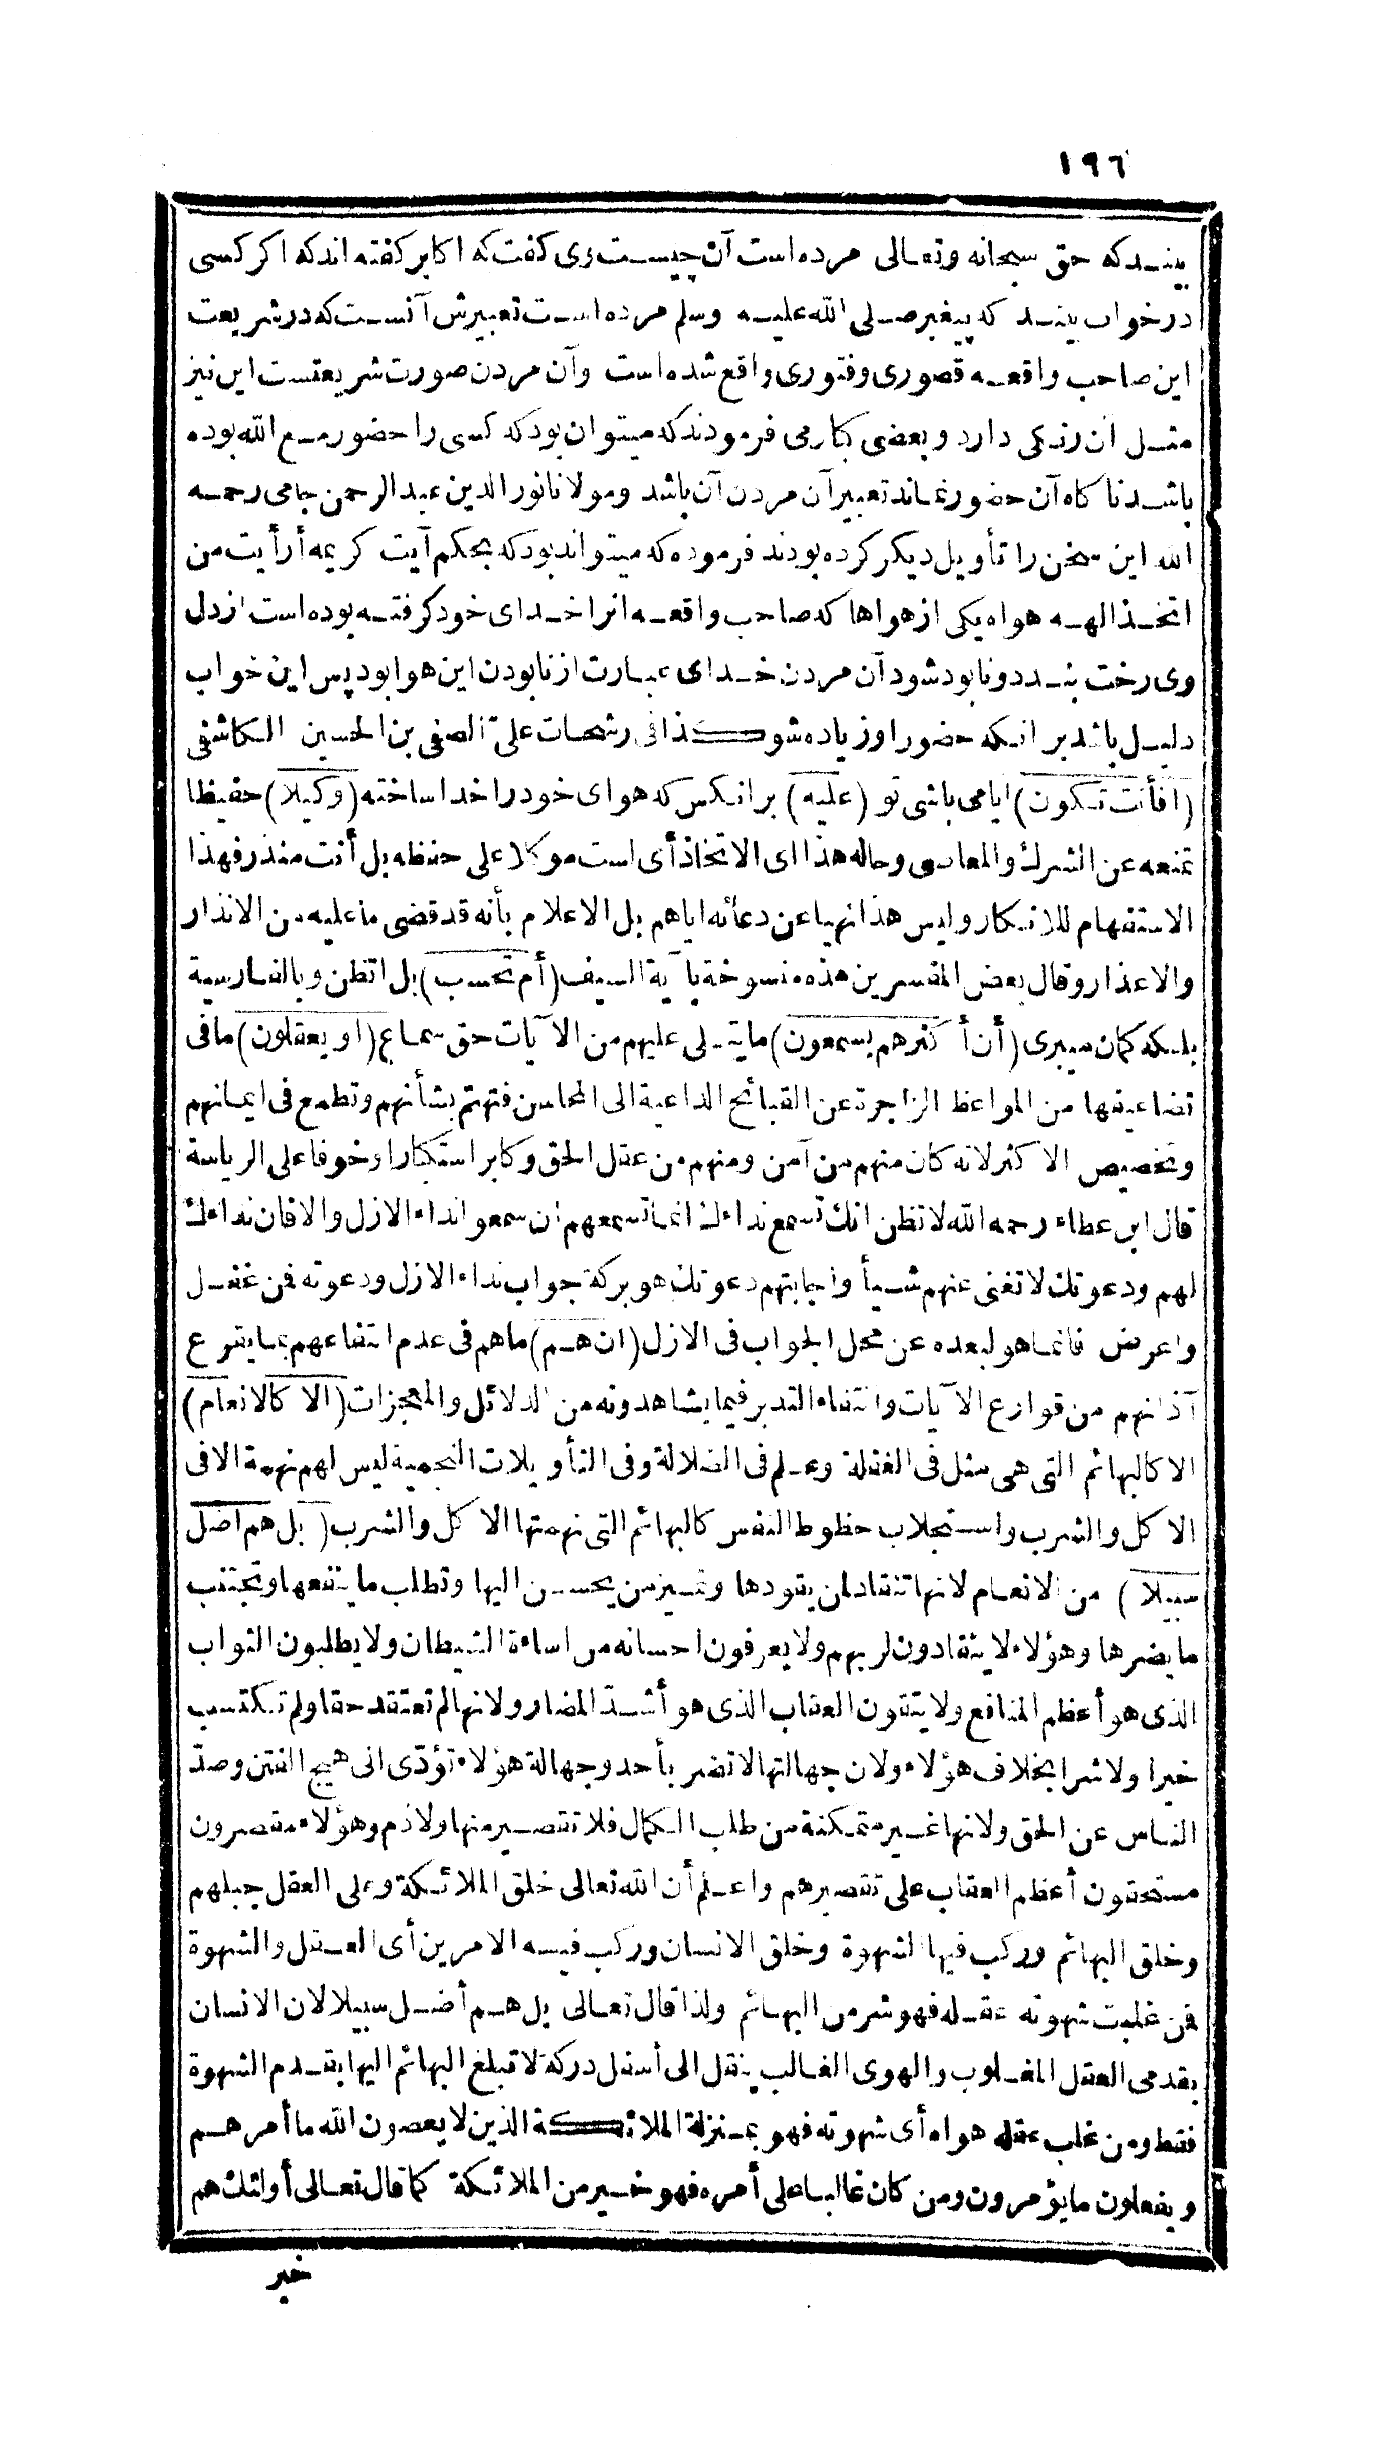 ١٩٦
بيند كه حق سبحانه وتعالى مرده است آن چيست وى كفت كه اكابر كفته اند كه اكر كسى
در خواب بيند كه پيغبر صلى الله عليه وسلم مرده است تعبيرش آنست كه در شريعت
اين صاحب واقعه قصورى وفتورى واقع شده است وآن مردن صورت شريعتست اين نيز
مثل آن رنكى دارد وبعضى كبار مى فرمودند كه ميتوان بود كه كسى را حضور مع الله بوده
باشد ناكاه آن حضور نماند تعبير آن مردن آن باشد ومولانا نور الدين عبد الرحمن جامى رحمه
الله اين سخن را تأويل ديكر كرده بودند فرموده كه ميتواند بود كه بحكم آيت كريمه أرأيت من
اتخذ الهه هواه يكى از هواها كه صاحب واقعه انرا خداى خود كرفته بوده است از دل
وى رخت بندد ونابود شود آن مردن خداى عبارت از نابودن اين هوا بود پس اين خواب
دليل باشد بر انكه حضور او زياده شود كذا فى رشحات علىّ الصفى بن الحسين الكاشفى
(افأنت تكون) ايا مى باشى تو (عليه) بر انكس كه هواى خود را خدا ساخته (وكيلا) حفيظا
تمنعه عن الشرك والمعاصى وحاله هذا اى الاتخاذ أى لست موكلا على حفظه بل أنت منذر فهذا
الاستفهام للانكار وليس هذا نهيا عن دعائه اياهم بل الاعلام بأنه قد قضى ما عليه من الانذار
والاعذار وقال بعض المفسرين هذه منسوخة بآية السيف (أم تحسب) بل اتظن وبالفارسية
بلكه كمان ميبرى (أن أكثرهم يسمعون) ما يتلى عليهم من الآيات حق سماع (او يعقلون) ما فى
تضاعيفها من المواعظ الزاجرة عن القبائح الداعية الى المحاسن فتهتم بشأنهم وتطمع فى ايمانهم
وتخصيص الاكثر لانه كان منهم من آمن ومنهم من عقل الحق وكابر استكبارا وخوفا على الرياسة
قال ابن عطاء رحمه الله لا تظن انك تسمع نداءك انما تسمعهم ان سمعوا نداء الازل والا فان نداءك
لهم ودعوتك لا تغنى عنهم شيأ واجابتهم دعوتك هو بركة جواب نداء الازل ودعوته فمن غفل
واعرض فانما هو لبعده عن محل الجواب فى الازل (ان هم) ما هم فى عدم انتفاعهم بما يقرع
آذانهم من قوارع الآيات وانتفاء التدبر فيما يشاهدونه من الدلائل والمعجزات (الا كالانعام)
الا كالبهائم التى هى مثل فى الغفلة وعلم فى الضلالة وفى التأويلات النجمية ليس لهم نهمة الا فى
الاكل والشرب واستجلاب حظوظ النفس كالبهائم التى نهمتها الاكل والشرب (بل هم اضل
سبيلا) من الانعام لانها تنقاد لمن يقودها وتميز من يحسن اليها وتطلب ما ينفعها وتجتنب
ما يضرها وهؤلاء لا ينقادون لربهم ولا يعرفون احسانه من اساءة الشيطان ولا يطلبون الثواب
الذى هو أعظم المنافع ولا يتقون العقاب الذى هو أشدّ المضار ولانها لم تعتقد حقا ولم تكتسب
خيرا ولا شرا بخلاف هؤلاء ولان جهالتها لا تضر بأحد وجهالة هؤلاء تؤدّى الى هيج الفتن وصدّ
الناس عن الحق ولانها غير متمكنة من طلب الكمال فلا تقصير منها ولا ذم وهؤلاء مقصرون
مستحقون أعظم العقاب على تقصيرهم واعلم أن الله تعالى خلق الملائكة وعلى العقل جبلهم
وخلق البهائم وركب فيها الشهوة وخلق الانسان وركب فيه الامرين أى العقل والشهوة
فمن غلبت شهوته عقله فهو شر من البهائم ولذا قال تعالى بل هم أضل سبيلا لان الانسان
بقدمى العقل المغلوب والهوى الغالب ينقل الى أسفل دركة لا تبلغ البهائم اليها بقدم الشهوة
فقط ومن غلب عقله هواه أى شهوته فهو بمنزلة الملائكة الذين لا يعصون الله ما أمرهم
ويفعلون ما يؤمرون ومن كان غالبا على أمره فهو خير من الملائكة كما قال تعالى أولئك هم
خير